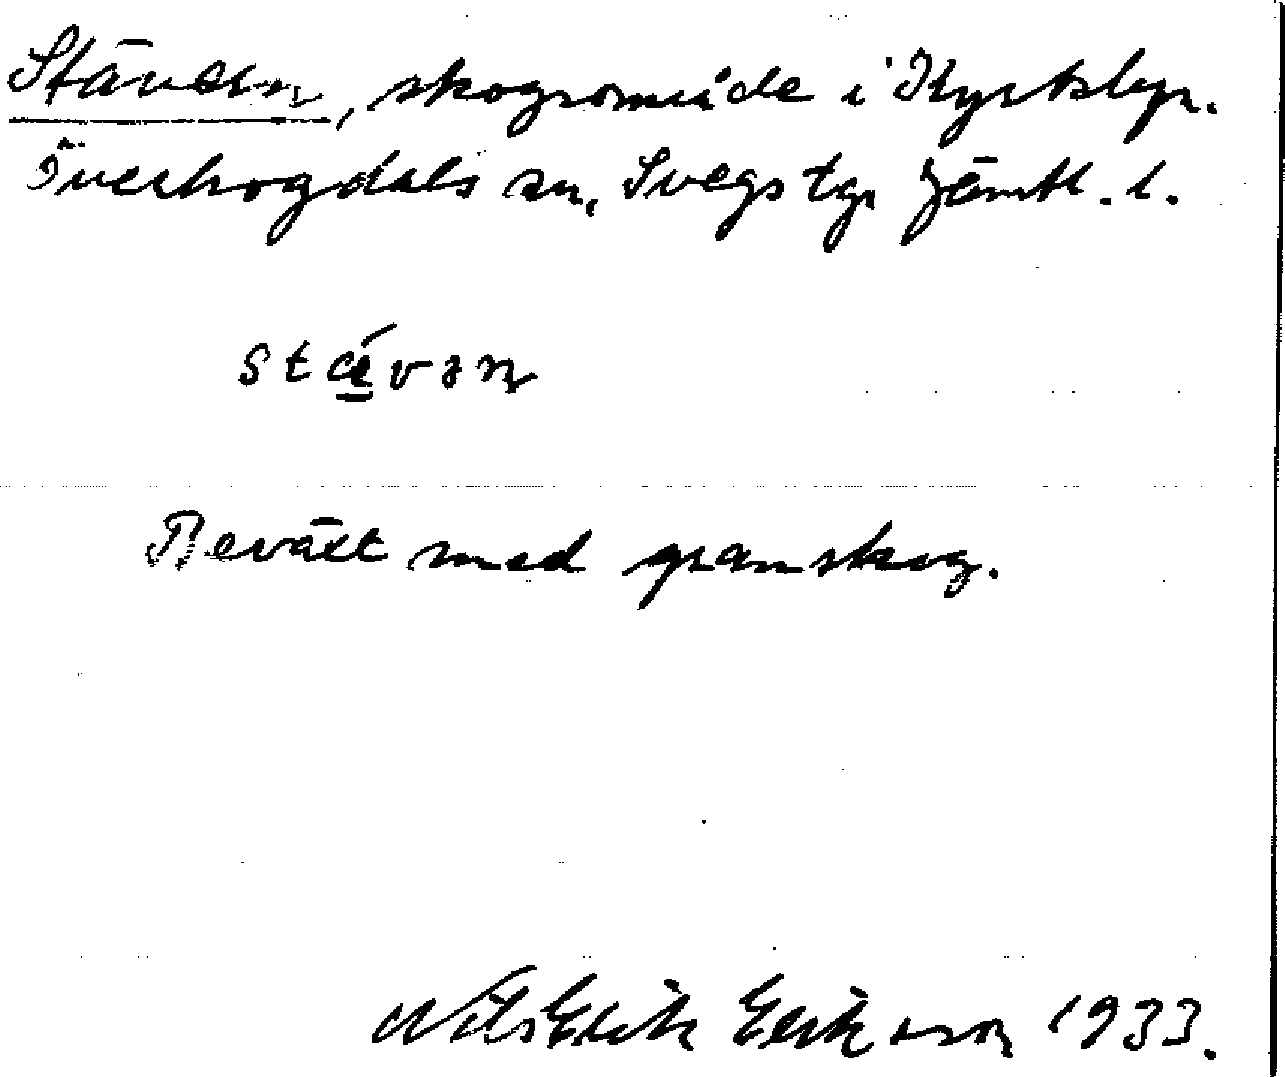 Stäven, skogsområde i Kyrkbyn.
Överhogdals sn, Svegs tg. Jämtl. l.
stǽvan
Beväxt med granskog.
Nils Erik Eriksson 1933.